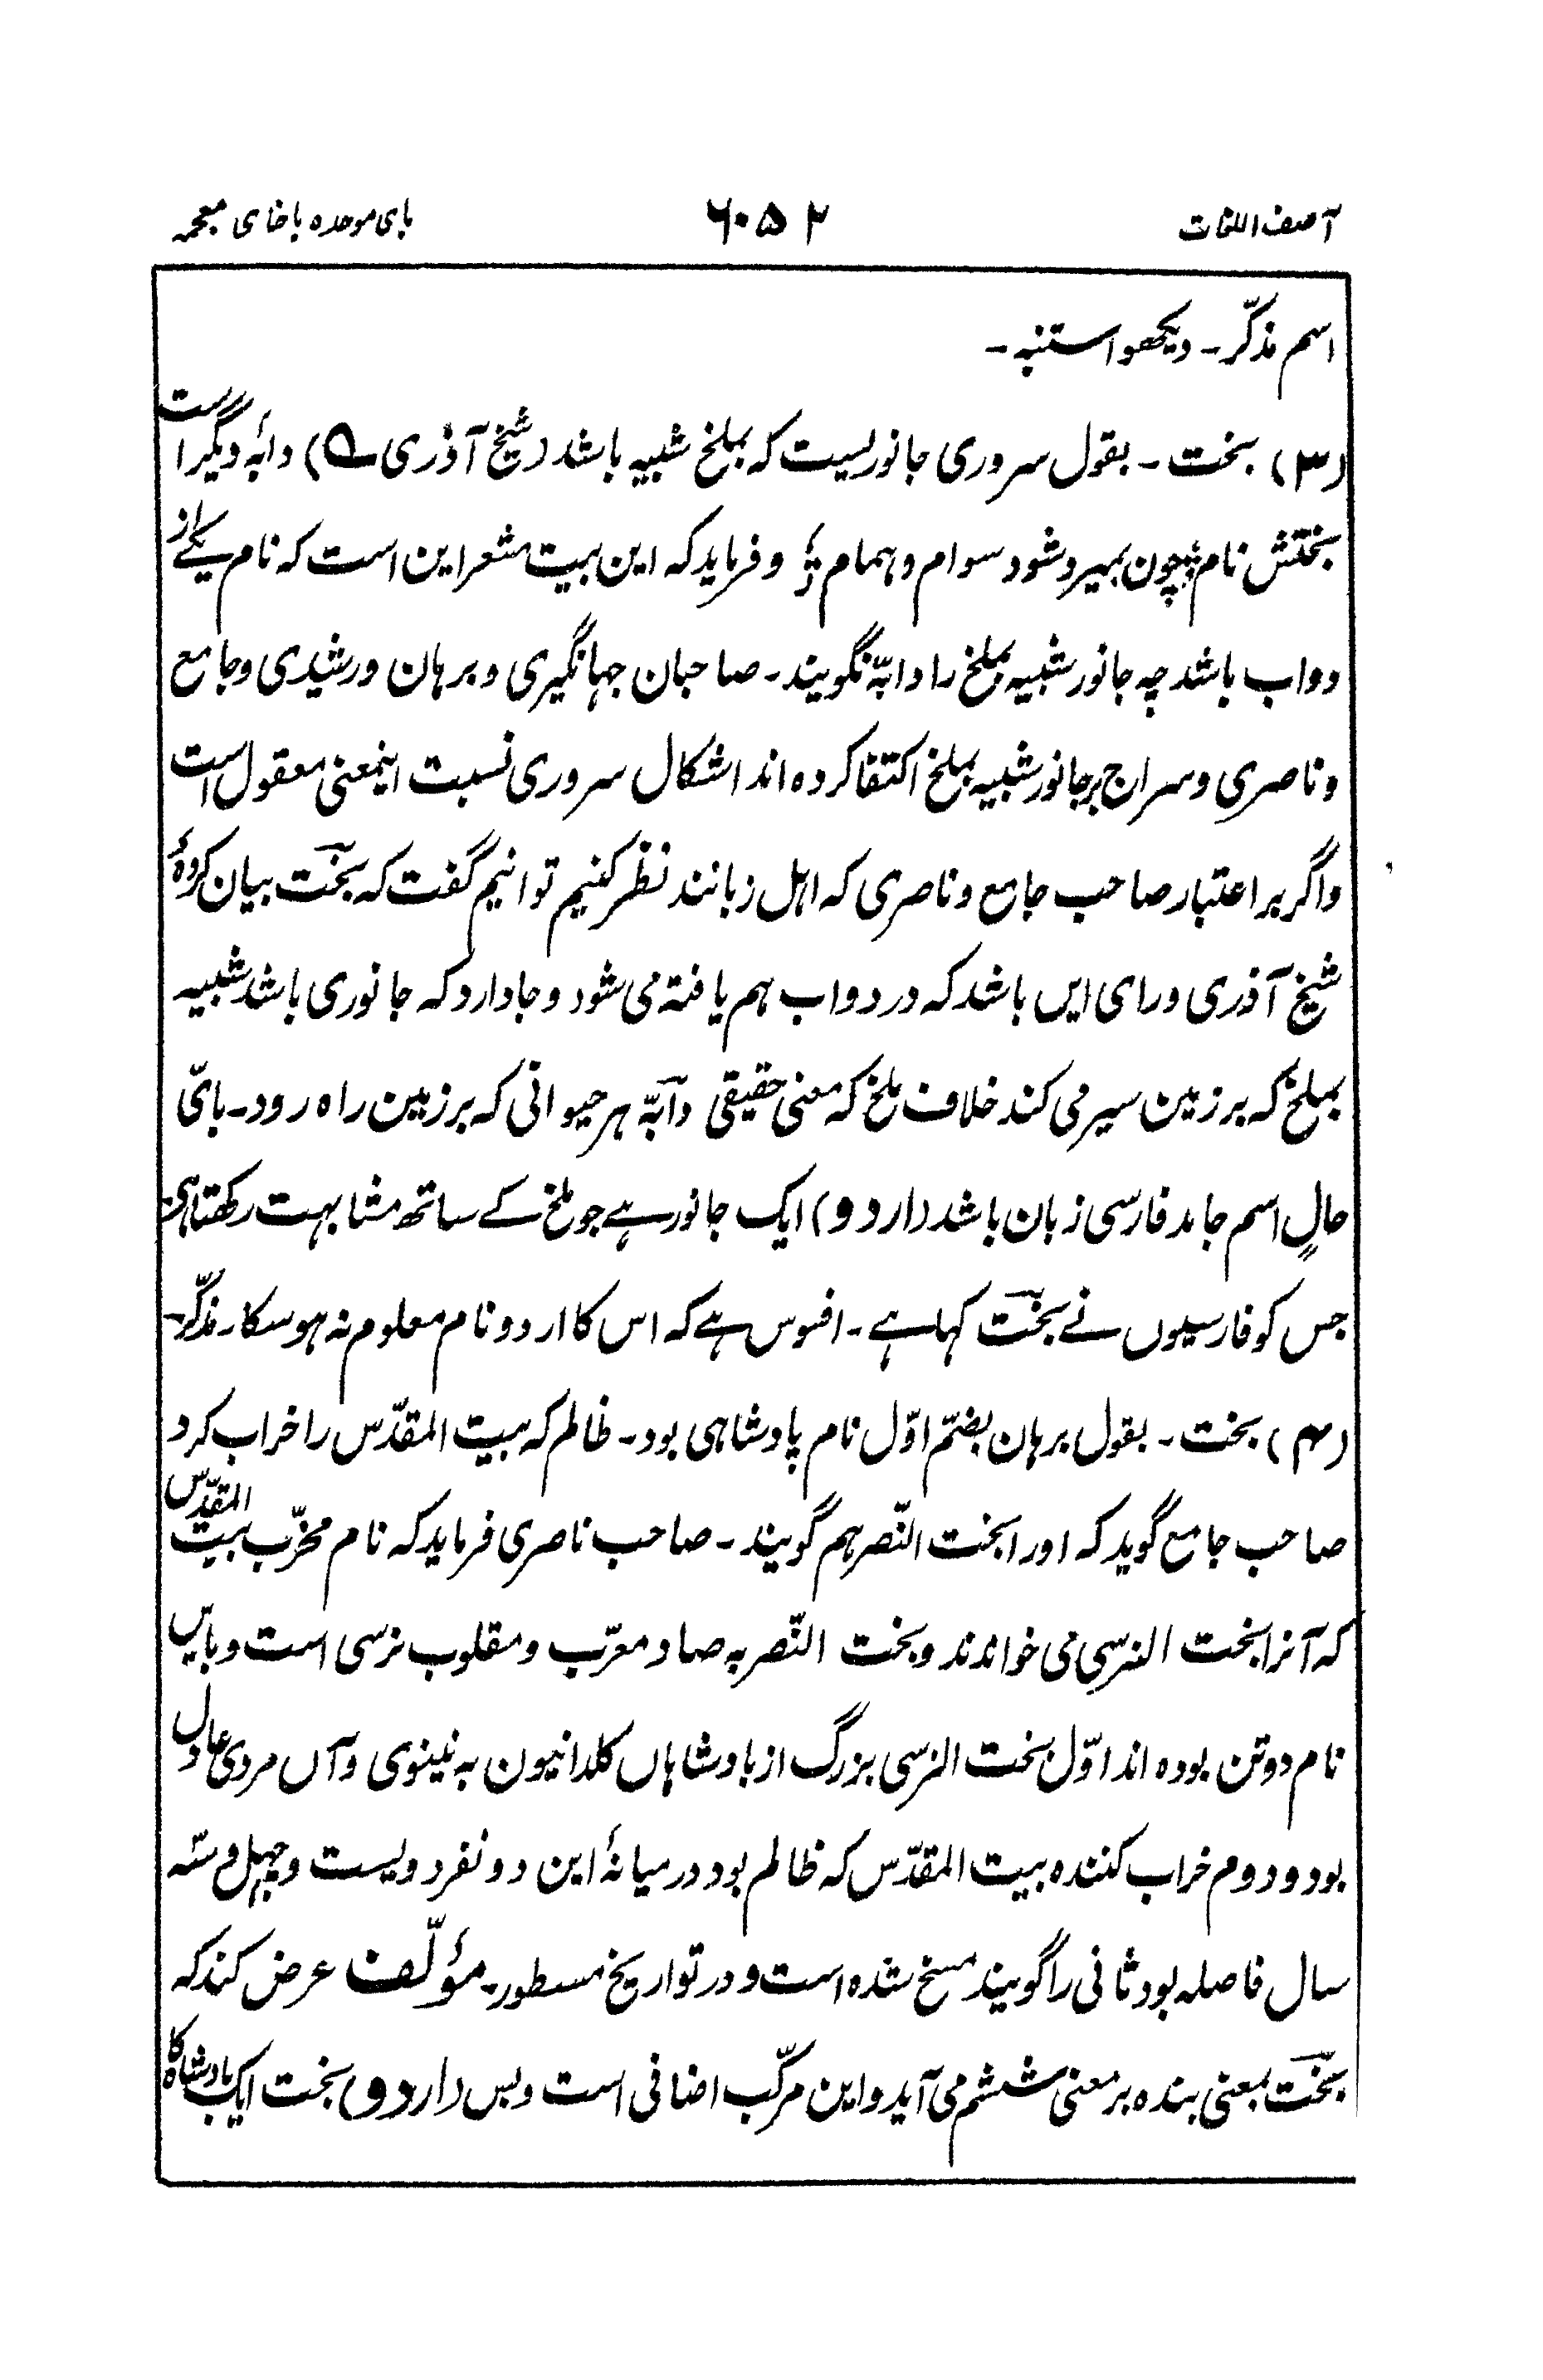 آصف اللغات ۶۰۵۲ بای موحده با خای معجمه
اسم مذکّر ۔ دیکھو استنبه ۔
(۳) بخت ۔ بقول سروری جانوریست که بملخ شبیه باشد (شیخ آذری ؎) دابهٔ دیگر است
بختش نام ؛ چون بمیرد شود سوام و همام ؛ و فرماید که این بیت مشعر این است که نام یکے از
دواب باشد چه جانور شبیه بملخ را دابّه نگویند ۔ صاحبان جهانگیری و برهان و رشیدی و جامع
و ناصری و سراج بر جانور شبیه بملخ اکتفا کرده اند اشکال سروری نسبت اینمعنی معقول است
و اگر بر اعتبار صاحب جامع و ناصری که اهل زبانند نظر کنیم توانیم گفت که بخت بیان کردهٔ
شیخ آذری ورای ایں باشد که در دواب هم یافته می شود و جا دارد که جانوری باشد شبیه
بملخ که بر زمین سیر می کند خلاف ملخ که معنی حقیقی دآبّه هر حیوانی که بر زمین راه رود ۔ بایّ
حالٍ اسم جامد فارسی زبان باشد (اردو) ایک جانور ہے جو ملخ کے ساتھ مشابہت رکھتا ہی
جس کو فارسیوں نے بخت کہا ہے ۔ افسوس ہے کہ اس کا اردو نام معلوم نہ ہو سکا ۔ مذکّر ۔
(۴) بخت ۔ بقول برهان بضمّ اوّل نام پادشاهی بود ۔ ظالم که بیت المقدّس را خراب کرد
صاحب جامع گوید که او را بخت النّصر هم گویند ۔ صاحب ناصری فرماید که نام مخرّب بیت المقدّس
که آنرا بخت النرسی می خواندند و بخت النّصر به صاد معرّب و مقلوب نرسی است و باید
نام دو تن بوده اند اوّل بخت النرسی بزرگ از بادشاهاں کلدانیون به نینوی و آں مردی عادل
بود و دوم خراب کننده بیت المقدّس که ظالم بود در میانهٔ این دو نفر دویست و چهل و سه
سال فاصله بود ثانی را گویند مسخ شده است و در تواریخ مسطور ۔ مؤلّف عرض کند که
بخت بمعنی بنده بر معنی ششم می آید و این مرکّب اضافی است و بس (اردو) بخت ایک بادشاہ کا